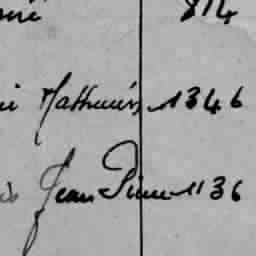 814
Mathurin 1346
Jean Pierre 1136